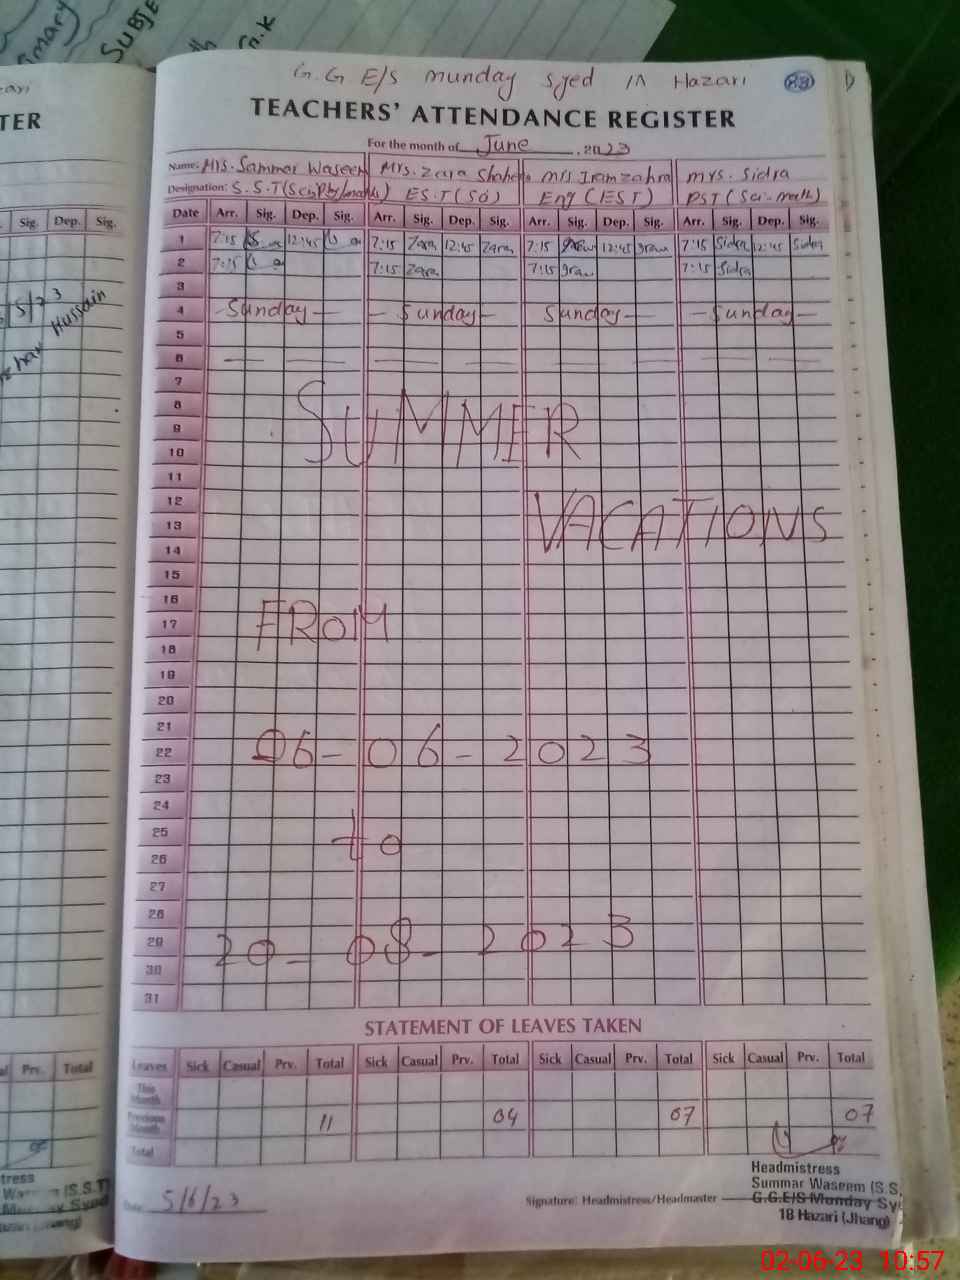 SUBJE
G.K
G.G E/S munday syed 18 Hazari
TEACHERS' ATTENDANCE REGISTER
TER
For the month of June, 2023
Name: Mrs. Sammar Waseem Mrs. Zara Mrs Iram Zahra Mrs. Sidra
Designation: S.S.T EST (Eng (EST) PST (Sci-math)
Date Arr. Sig. Dep. Sig. Arr. Sig. Dep. Sig. Arr. Sig. Dep. Sig. Arr. Sig. Dep. Sig.
Sig. Dep. Sig.
1 7:15 12:45 7:15 Zara 12:45 Zara 7:15 12:45 Iram 7:15 Sidra 12:45 Sidra
2 7:15 7:15 Zara 7:15 Iram 7:15 Sidra
3
4 Sunday Sunday Sunday Sunday
5/23
Hussain
5
6
7
8
9 SUMMER
10
11
12
13 VACATIONS
14
15
16
17 FROM
18
19
20
21
22 06-06-2023
23
24
25
26 to
27
28
29 20-08-2023
30
31
STATEMENT OF LEAVES TAKEN
Leaves Sick Casual Prv. Total Sick Casual Prv. Total Sick Casual Prv. Total Sick Casual Prv. Total
Prv. Total
This Month
Previous Month 11 04 07 07
Total
Headmistress
Summar Waseem (S.S.
G.G.E/S Munday Sy
18 Hazari (Jhang)
Date: 5/6/23
Signature: Headmistress/Headmaster
tress
(S.S.T)
02-06-23 10:57